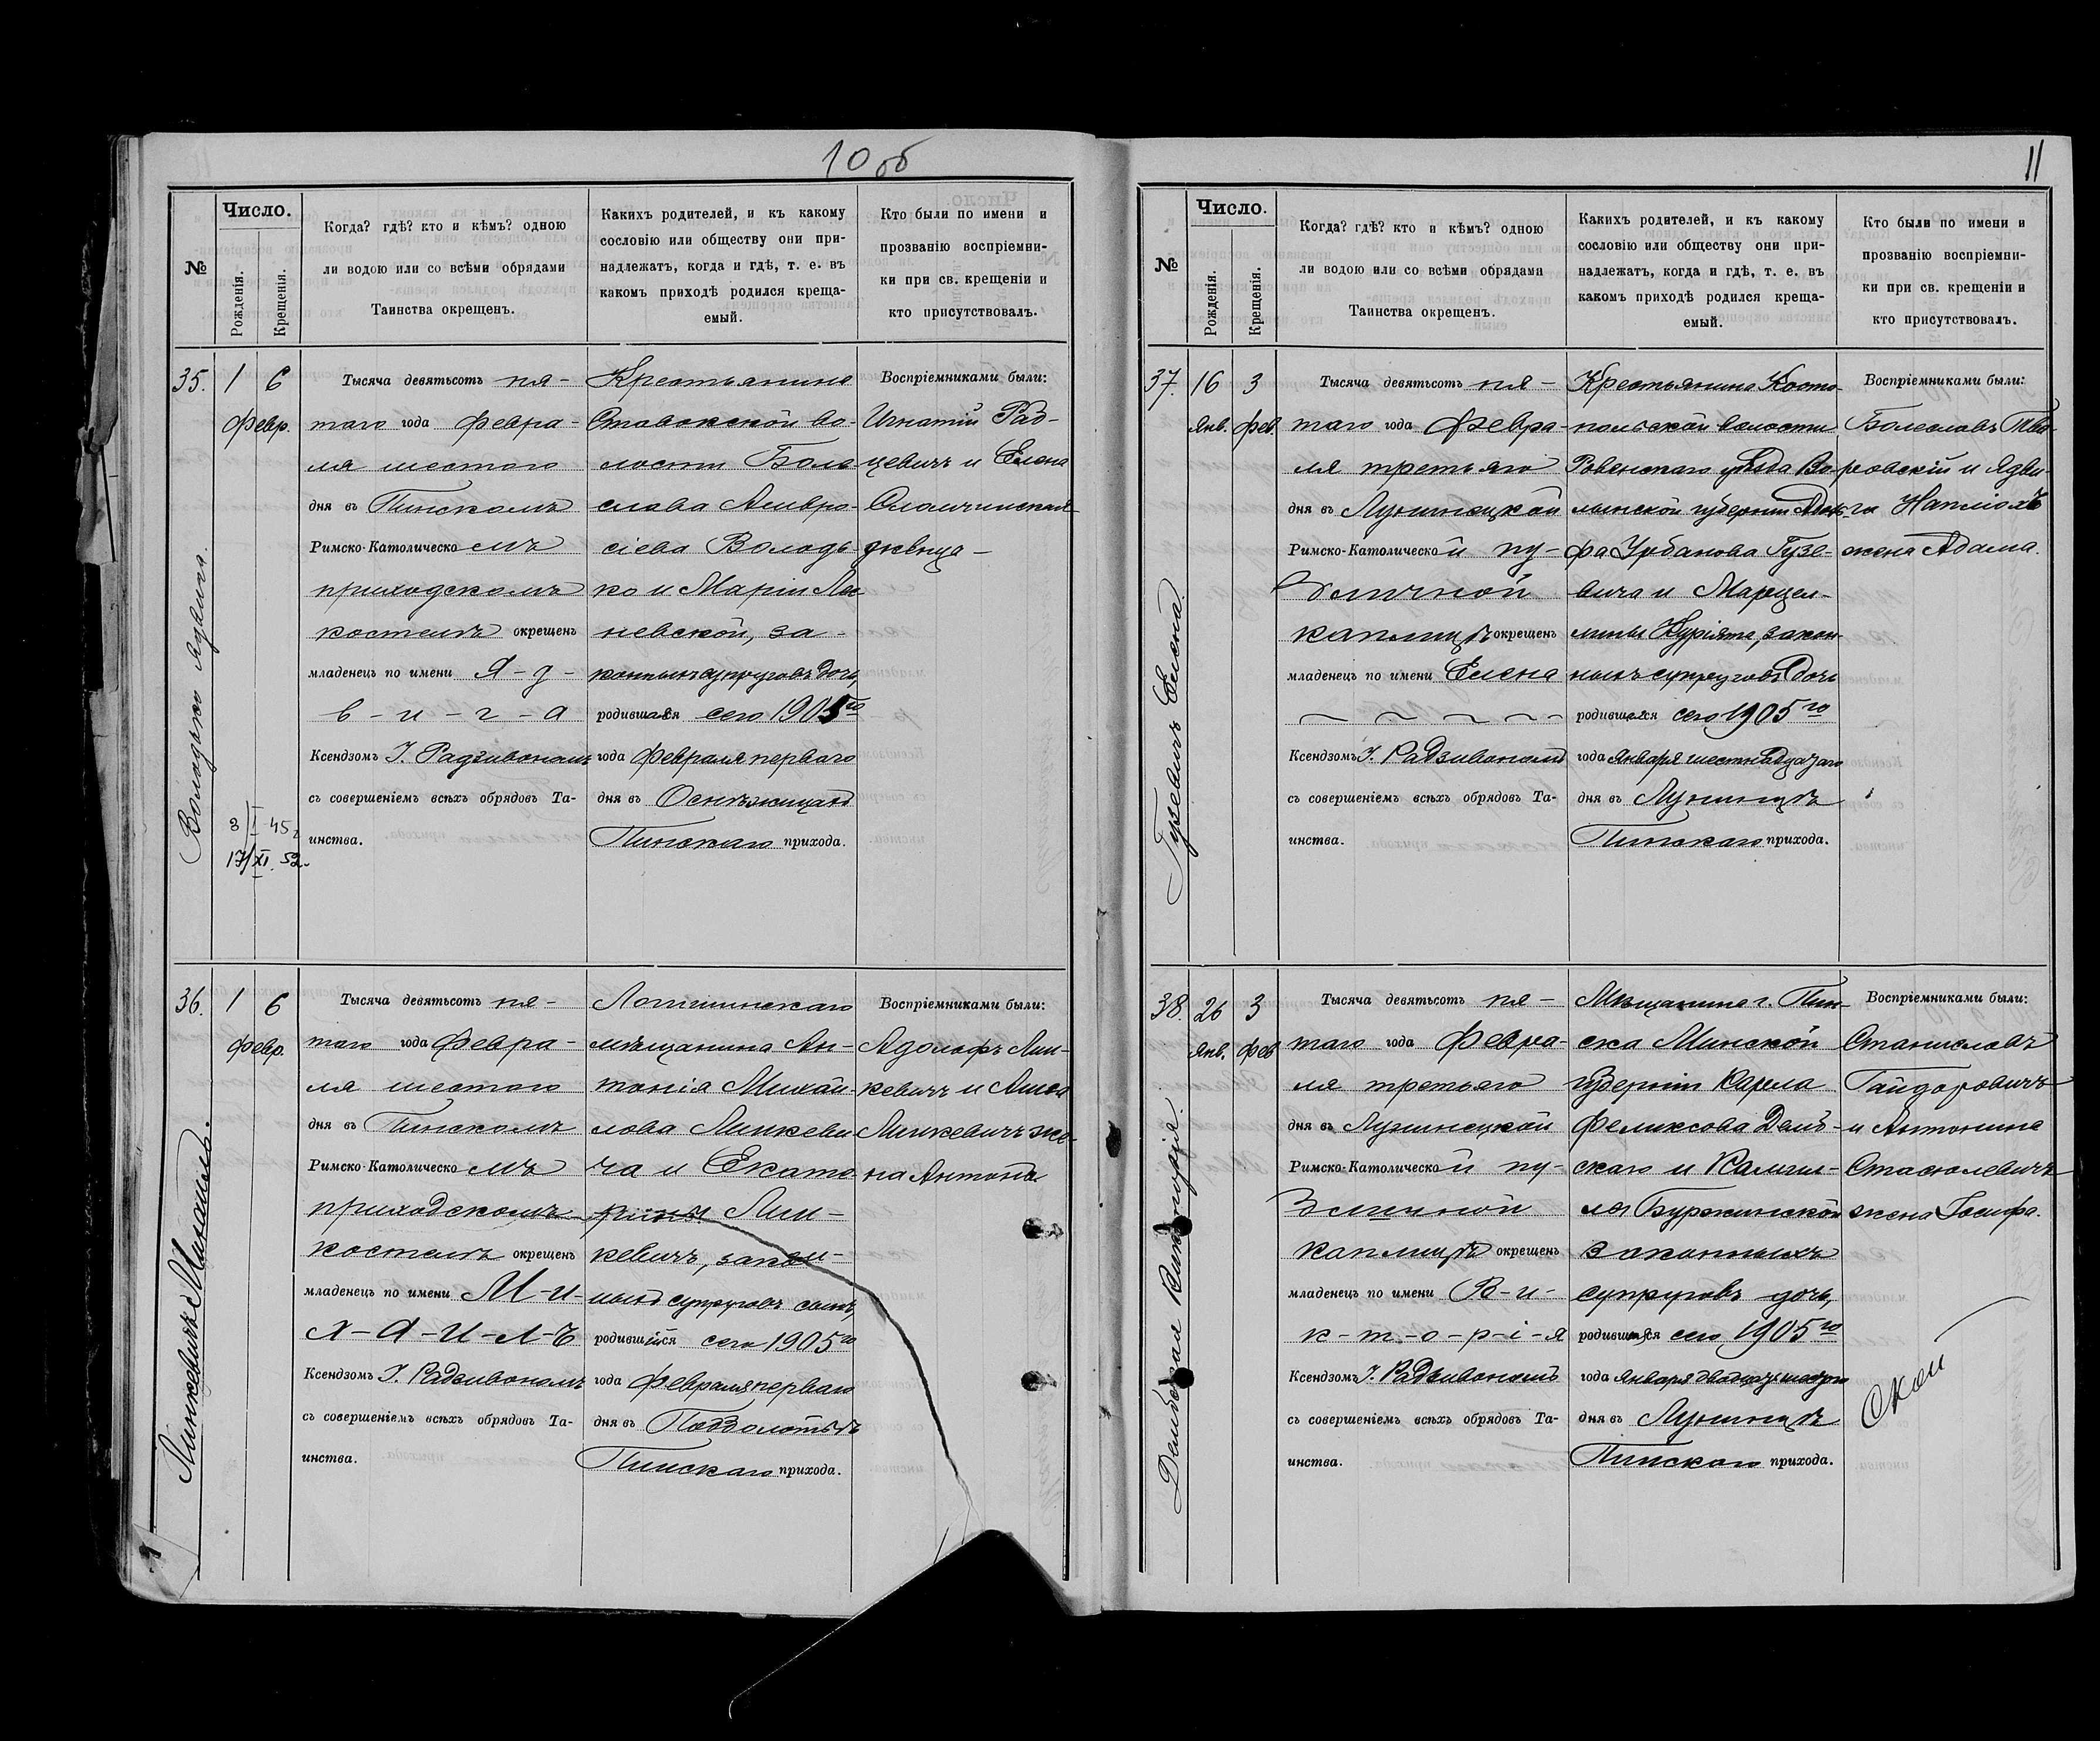 10 об
№
Число.
Рожденія.
Крещенія.
Когда? гдѣ? кто и кѣмъ? одною
ли водою или со всѣми обрядами
Таинства окрещенъ.
Какихъ родителей, и къ какому
сословію или обществу они при-
надлежатъ, когда и гдѣ, т. е. въ
какомъ приходѣ родился креща-
емый.
Кто были по имени и
прозванію воспріемни-
ки при св. крещеніи и
кто присутствовалъ.
35.
1 6
Февр.
Володько Ядвига.
3/I 45г
17/XI. 52.
Тысяча девятьсотъ пя-
таго года Февра-
ля шестого
дня въ Пинскомъ
Римско-Католическомъ
приходскомъ
костелѣ окрещенъ
младенецъ по имени Я-д-
в-и-г-а
Ксендзомъ І. Радзивономъ
съ совершеніемъ всѣхъ обрядовъ Та-
инства.
Крестьянина
Ставокской во-
лости Боле
слава Амвро-
сіева Володь-
ко и Маріи
невской, за-
конныхъ супруговъ дочь,
родившаяся сего 1905го
года Февраля перваго
дня въ Оснѣжицахъ
Пинскаго прихода.
Воспріемниками были:
Игнатій Рад-
цевичъ и Елена
дѣвица
36.
1 6
Февр.
Линкевичъ Михаилъ.
Тысяча девятьсотъ пя-
таго года Февра-
ля шестого
дня въ Пинскомъ
Римско-Католическомъ
приходскомъ
костелѣ окрещенъ
младенецъ по имени М-и-
х-а-и-л-ъ
Ксендзомъ І. Радзивономъ
съ совершеніемъ всѣхъ обрядовъ Та-
инства.
Логишинскаго
мѣщанина Ан-
тонія Михай-
лова Линкеви
ча и Екате
рины Лин-
кевичъ, закон-
ныхъ супруговъ сынъ,
родившійся сего 1905го
года Февраля перваго
дня въ Подболотьѣ
Пинскаго прихода.
Воспріемниками были:
Адольфъ Лин-
кевичъ и
Линкевичъ же-
на Антона
11
№
Число.
Рожденія.
Крещенія.
Когда? гдѣ? кто и кѣмъ? одною
ли водою или со всѣми обрядами
Таинства окрещенъ.
Какихъ родителей, и къ какому
сословію или обществу они при-
надлежатъ, когда и гдѣ, т. е. въ
какомъ приходѣ родился креща-
емый.
Кто были по имени и
прозванію воспріемни-
ки при св. крещеніи и
кто присутствовалъ.
37.
16 3
Янв. Фев.
Гузевичъ Елена.
Тысяча девятьсотъ пя-
таго года Февра-
ля третьяго
дня въ Лунинецкой
Римско-Католической пу-
бличной
каплицѣ окрещенъ
младенецъ по имени Елена
Ксендзомъ І. Радзивономъ
съ совершеніемъ всѣхъ обрядовъ Та-
инства.
Крестьянина Косто-
польской волости
Ровенскаго уѣзда Во-
лынской губерніи
фа Урбанова Гузе-
вича и Марцел-
лины Куріята, закон-
ныхъ супруговъ дочь
родившаяся сего 1905го
года Января шестнадцатаго
дня въ Лунинцѣ
Пинскаго прихода.
Воспріемниками были:
Болеславъ
и Ядви-
га
жена Адама.
38.
26 3
Янв. Фев
Тысяча девятьсотъ пя-
таго года Февра-
ля третьяго
дня въ Лунинецкой
Римско-Католической пу-
бличной
каплицѣ окрещенъ
младенецъ по имени В-и-
к-т-о-р-і-я
Ксендзомъ І. Радзивономъ
съ совершеніемъ всѣхъ обрядовъ Та-
инства.
Мѣщанина г. Пин-
ска Минской
губерніи Карла
Феликсова
скаго и
Буржинской
законныхъ
супруговъ дочь,
родившаяся сего 1905го
года Января двадцать шестого
дня въ Лунинцѣ
Пинскаго прихода.
Воспріемниками были:
Станиславъ
Гайдоровичъ
и Антонина
Стасюлевичъ
жена Іосифа.